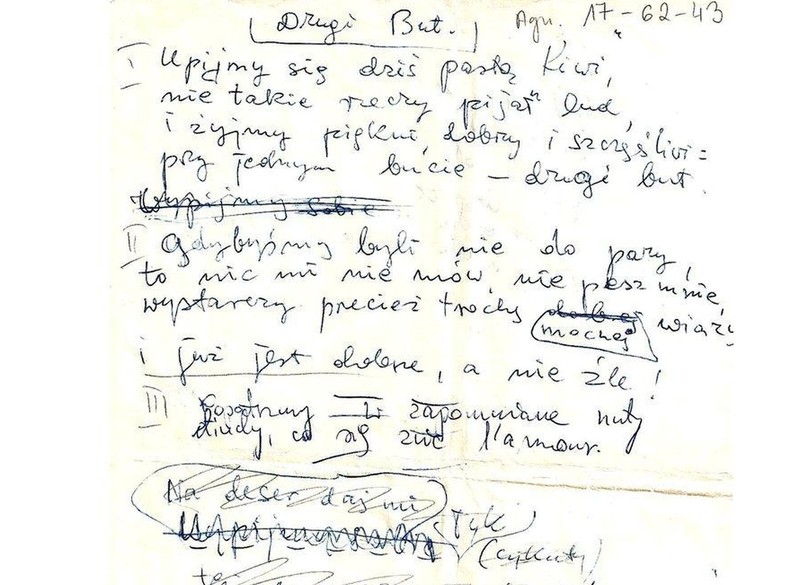 Drugi But. Agn. 17-62-43
I Upijmy się dziś pastą Kiwi,
nie takie rzeczy pijał lud,
i żyjmy piękni, dobrzy i szczęśliwi =
przy jednym bucie – drugi but.
Wypijmy sobie
II Gdybyśmy byli nie do pary,
to nic mi nie mów, nie pesz mnie,
wystarczy przecież trochę mocnej wiary
i już jest dobrze, a nie źle!
III zapomniane nuty
etiudy, co się zwie l'amour.
Na deser daj mi
łyk
(cykuty)